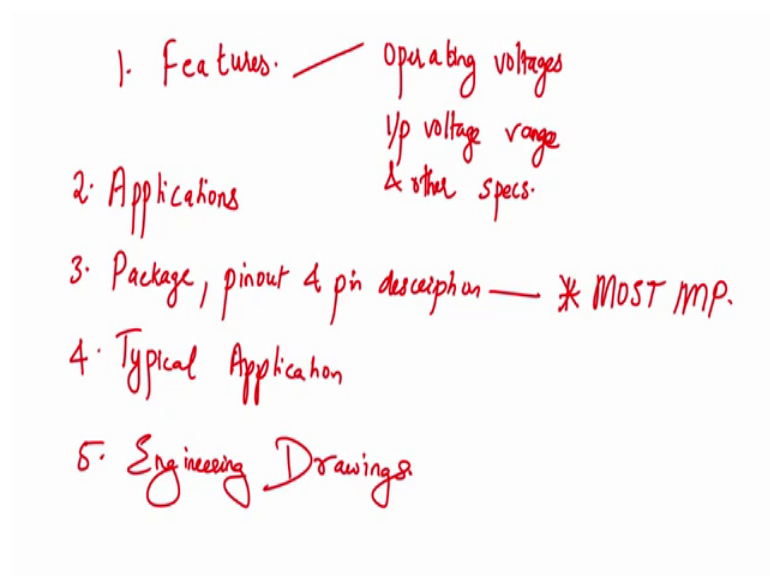 1. Features. — Operating voltages
I/p voltage range
& other specs.
2. Applications
3. Package, pinout & pin description — * MOST IMP.
4. Typical Application
5. Engineering Drawings.